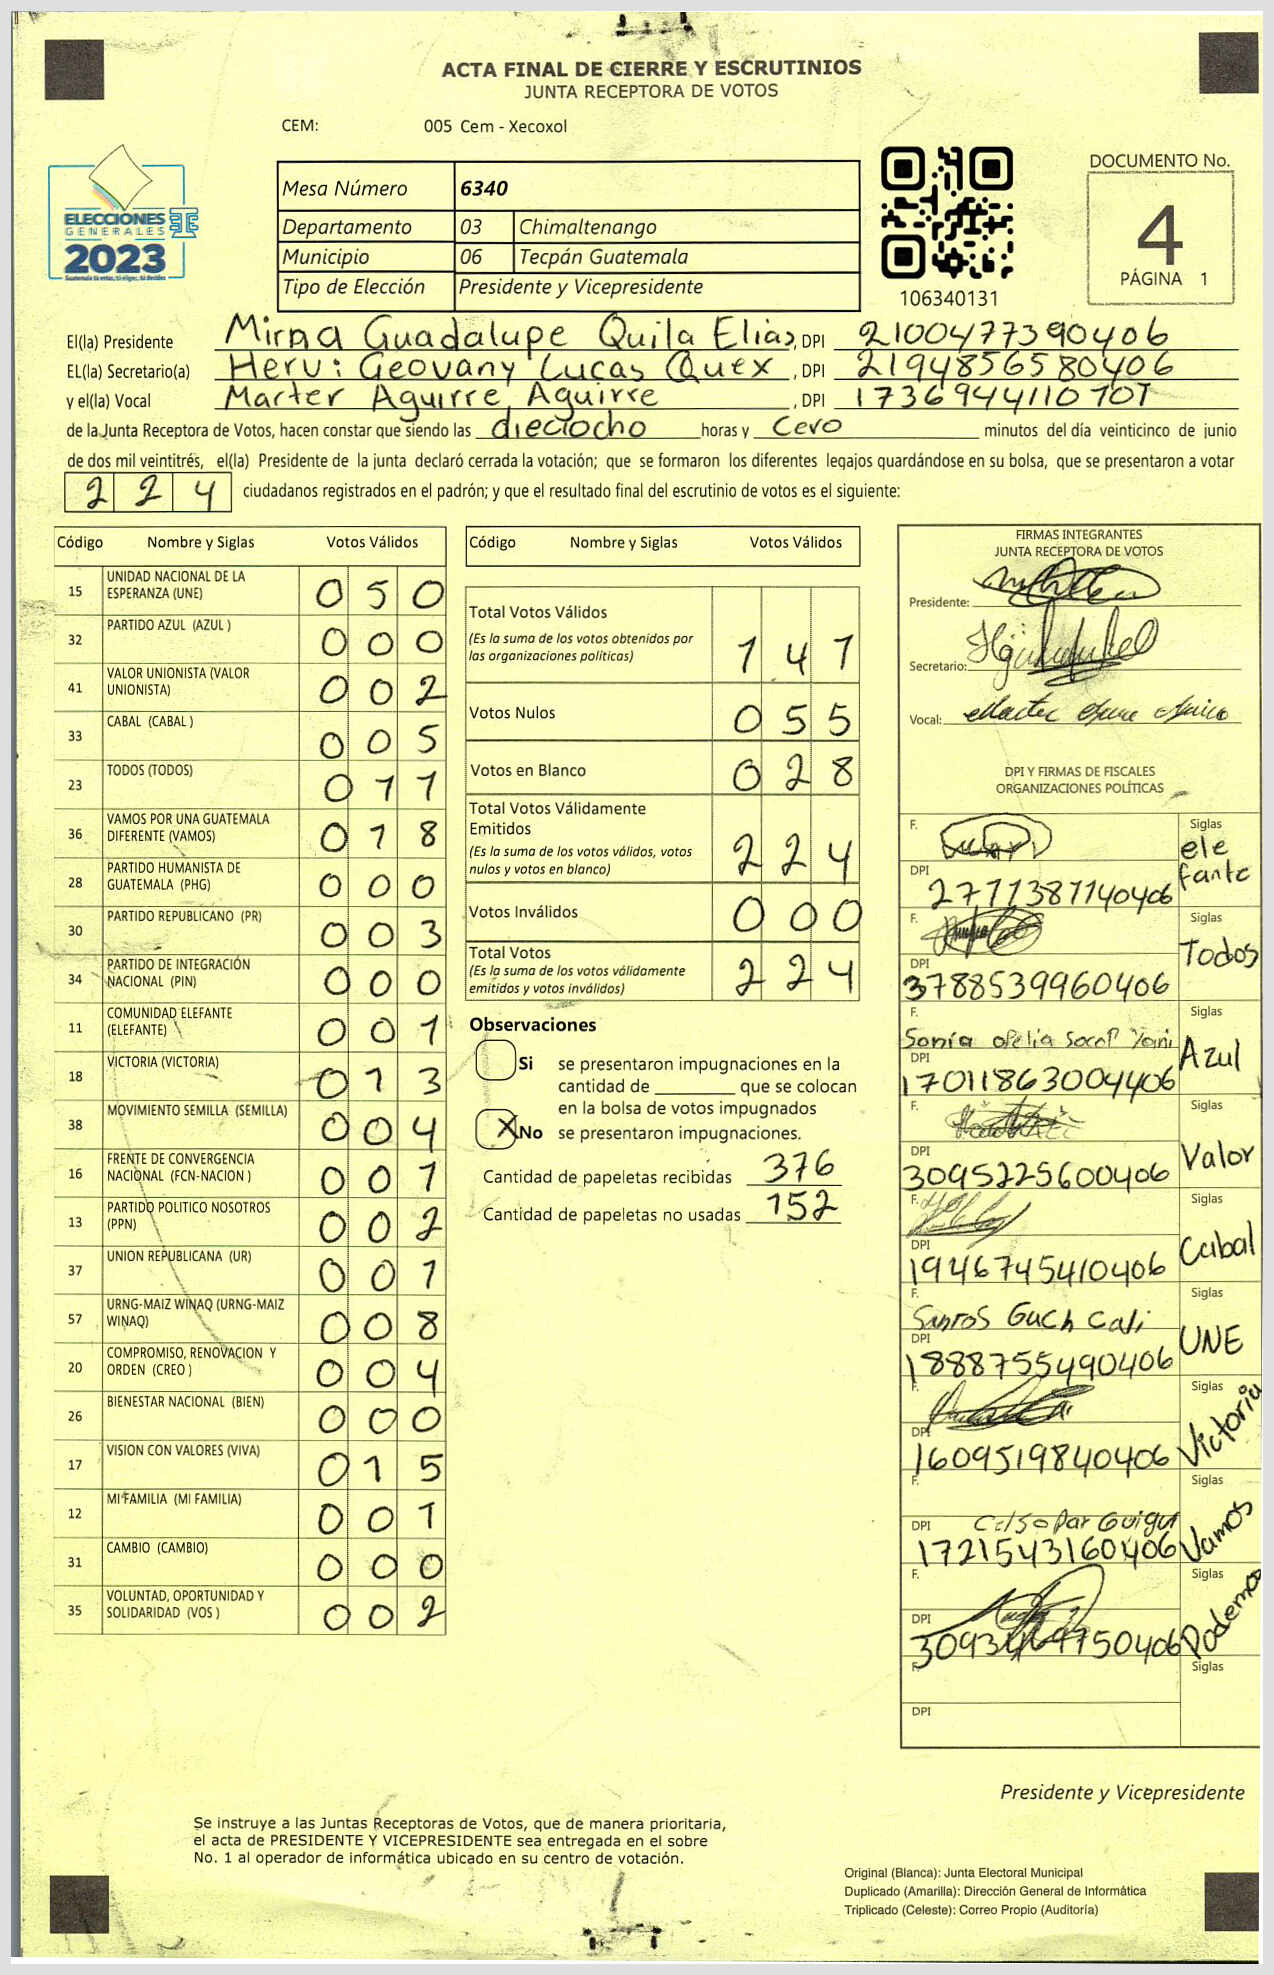 ACTA FINAL DE CIERRE Y ESCRUTINIOS
JUNTA RECEPTORA DE VOTOS
CEM: 005 Cem - Xecoxol
ELECCIONES
GENERALES
2023
Mesa Número 6340
Departamento 03 Chimaltenango
Municipio 06 Tecpán Guatemala
Tipo de Elección Presidente y Vicepresidente
106340131
DOCUMENTO No.
4
PÁGINA 1
El(la) Presidente Mirna Guadalupe Quila Elias, DPI 2100477390406
EL(la) Secretario(a) Hervi Geovany Lucas Quex, DPI 2194856580406
y el(la) Vocal Marter Aguirre Aguirre, DPI
de la Junta Receptora de Votos, hacen constar que siendo las dieciocho horas y Cero minutos del día veinticinco de junio
de dos mil veintitrés, el(la) Presidente de la junta declaró cerrada la votación; que se formaron los diferentes legajos quardándose en su bolsa, que se presentaron a votar
224 ciudadanos registrados en el padrón; y que el resultado final del escrutinio de votos es el siguiente:
Código Nombre y Siglas Votos Válidos
15 UNIDAD NACIONAL DE LA ESPERANZA (UNE) 050
32 PARTIDO AZUL (AZUL ) 000
41 VALOR UNIONISTA (VALOR UNIONISTA) 002
33 CABAL (CABAL ) 005
23 TODOS (TODOS) 017
36 VAMOS POR UNA GUATEMALA DIFERENTE (VAMOS) 018
28 PARTIDO HUMANISTA DE GUATEMALA (PHG) 000
30 PARTIDO REPUBLICANO (PR) 003
34 PARTIDO DE INTEGRACIÓN NACIONAL (PIN) 000
11 COMUNIDAD ELEFANTE (ELEFANTE) 001
18 VICTORIA (VICTORIA) 013
38 MOVIMIENTO SEMILLA (SEMILLA) 004
16 FRENTE DE CONVERGENCIA NACIONAL (FCN-NACION ) 001
13 PARTIDO POLITICO NOSOTROS (PPN) 002
37 UNION REPUBLICANA (UR) 001
57 URNG-MAIZ WINAQ (URNG-MAIZ WINAQ) 008
20 COMPROMISO, RENOVACION Y ORDEN (CREO ) 004
26 BIENESTAR NACIONAL (BIEN) 000
17 VISION CON VALORES (VIVA) 015
12 MI FAMILIA (MI FAMILIA) 001
31 CAMBIO (CAMBIO) 000
35 VOLUNTAD, OPORTUNIDAD Y SOLIDARIDAD (VOS ) 002
Código Nombre y Siglas Votos Válidos
Total Votos Válidos
(Es la suma de los votos obtenidos por
las organizaciones políticas) 141
Votos Nulos 055
Votos en Blanco 028
Total Votos Válidamente
Emitidos
(Es la suma de los votos válidos, votos
nulos y votos en blanco) 224
Votos Inválidos 000
Total Votos
(Es la suma de los votos válidamente
emitidos y votos inválidos) 224
Observaciones
Si se presentaron impugnaciones en la
cantidad de ________ que se colocan
en la bolsa de votos impugnados
X No se presentaron impugnaciones.
Cantidad de papeletas recibidas 376
Cantidad de papeletas no usadas 152
FIRMAS INTEGRANTES
JUNTA RECEPTORA DE VOTOS
Presidente:
Secretario:
Vocal:
DPI Y FIRMAS DE FISCALES
ORGANIZACIONES POLÍTICAS
F. Siglas
elefante
DPI 2771387140406
F. Siglas
Todos
DPI 3788539960406
F. Siglas
Sonia Azul
DPI 1701186300406
F. Siglas
Valor
DPI 3095225600406
F. Siglas
Cabal
DPI 1946745410406
F. Siglas
Santos Guch Cali
UNE
DPI 1888755490406
F. Siglas
Victoria
DPI 1609519840406
F. Siglas
Celso Par Guigui
Vamos
DPI 1721543160406
F. Siglas
Podemos
DPI
F. Siglas
DPI
Presidente y Vicepresidente
Se instruye a las Juntas Receptoras de Votos, que de manera prioritaria,
el acta de PRESIDENTE Y VICEPRESIDENTE sea entregada en el sobre
No. 1 al operador de informática ubicado en su centro de votación.
Original (Blanca): Junta Electoral Municipal
Duplicado (Amarilla): Dirección General de Informática
Triplicado (Celeste): Correo Propio (Auditoría)